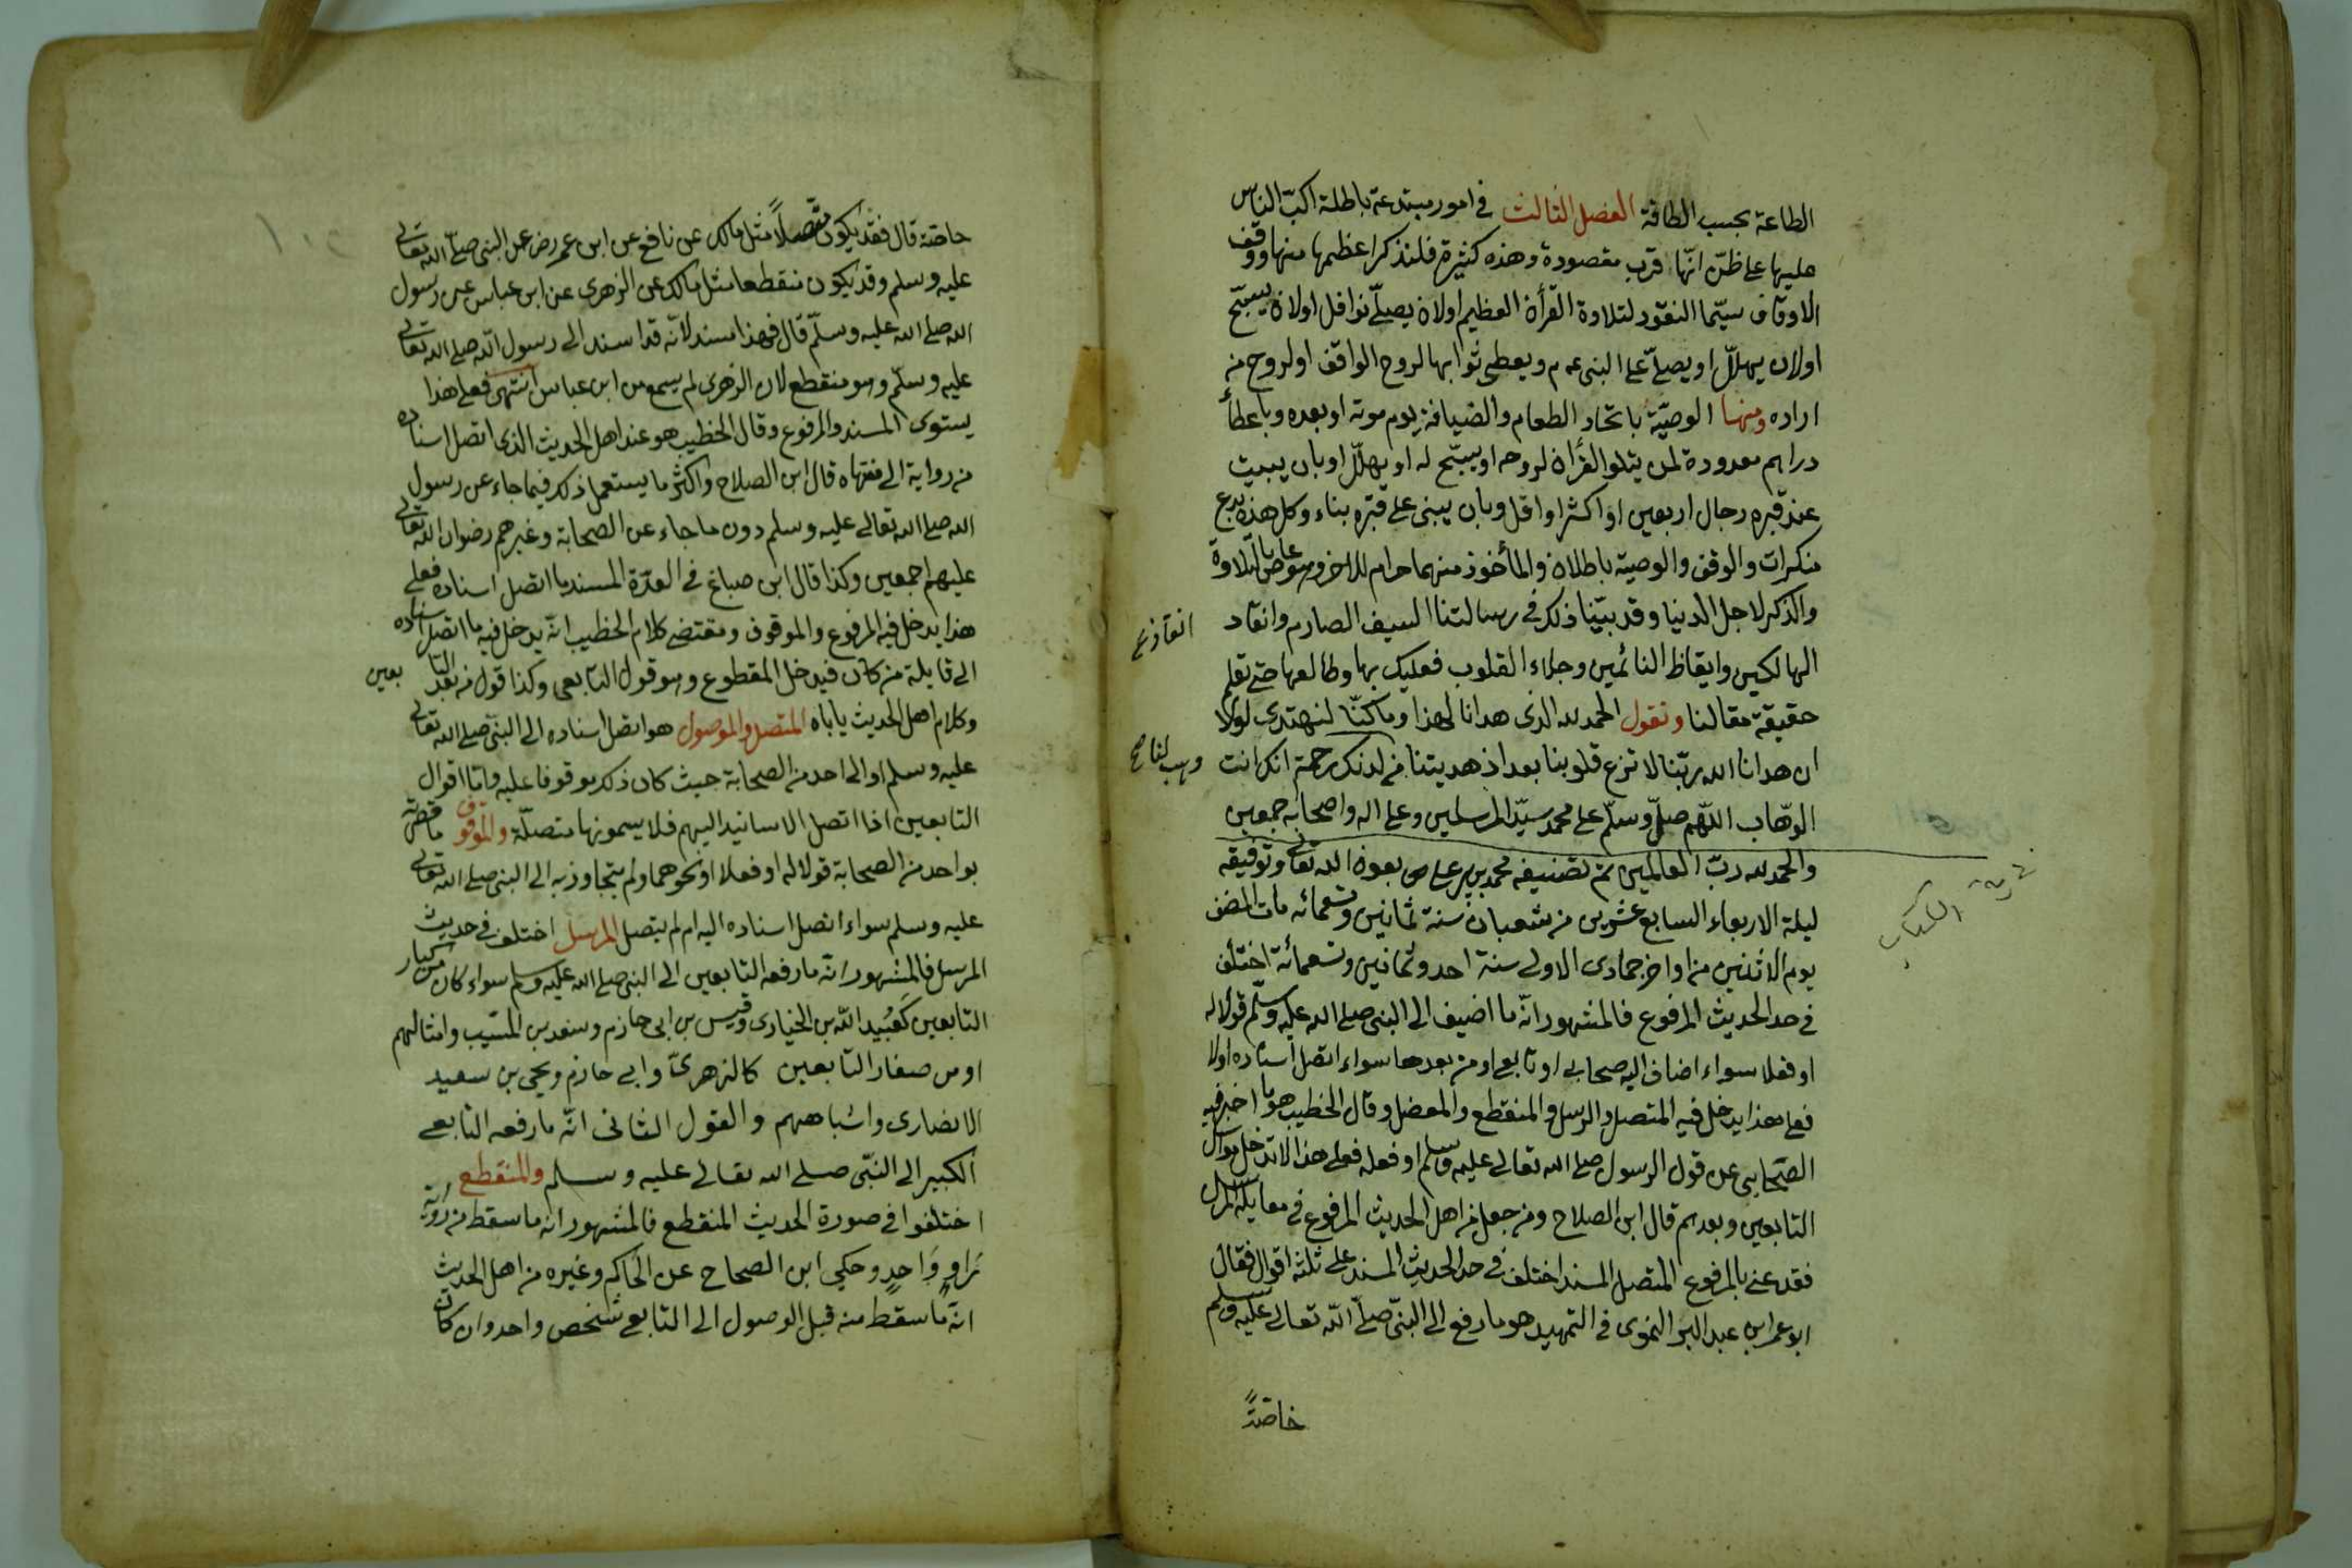 الطاعة بحسب الطاقة الفصل الثالث في امور مبتدعة باطلة اكبّ الناس
عليها على ظنّ انّها قرب مقصودة وهذه كثيرة فلنذكر اعظمها منها وقف
الاوقاف سيّما النقود لتلاوة القرأن العظيم اولان يصلّے نوافل اولان يسبّح
اولان يهلّل او يصلّے على النبى عم م ويعطى ثوابها لروح الواقف او لروح من
اراده ومنها الوصيّة باتخاد الطعام والضيافة يوم موته او بعده وباعطأ
دراهم معدودة لمن يتلو القرأن لروحه او يسبّح له او يهلّل او بان يبيت
عند قبره رجال اربعين او اكثر او اقل وبان يبنى على قبره بناء وكل هذه بدع
منكرات والوقف والوصية باطلان والمأخوذ منهما حرام للاخذ وهو عاص بالتلاوة
والذكر لاجل الدنيا وقد بيّنا ذلك في رسالتنا السيف الصارم وانقاد
انقاذ
الهالكين وايقاظ النائمين وجلاء القلوب فعليك بها وطالعها حتى تعلم
حقيقة مقالنا ونقول الحمد لله الذى هدانا لهذا وما كنّا لنهتدى لولا
ان هدانا الله ربّنا لا تزغ قلوبنا بعد اذ هديتنا من لدنك رحمة انك انت
وهب لنا صح
الوهّاب اللّهم صلّ وسلّم على محمد سيّد المرسلين وعلى اله واصحابه جمعين
والحمد لله ربّ العالمين تم تصنيفه محمد بن پير على بعون الله تعالى وتوفيقه
ليلة الاربعاء السابع عشرين من شعبان سنة ثمانين وتسعمائه مات المصنف
يوم الاثنين من اواخر جمادى الاولى سنة احد وثمانين وتسعمائة اختلف
في حد الحديث المرفوع فالمشهور انّه ما اضيف الى النبى صلى الله عليه وسلّم قولا له
او فعلا سواء اضاف اليه صحابى او تابعى او من بعدها سواء اتصل اسناده اولا
فعلى هذا يدخل فيه المتصل والمرسل والمنقطع والمعضل وقال الخطيب هو ما اخبر فيه
الصّحابى عن قول الرسول صلى الله تعالى عليه وسلم او فعله فعلى هذا لا تدخل مراسل
التابعين وبعدهم قال ابن الصلاح ومن جعل من اهل الحديث المرفوع في مقابلة المرسل
فقد عنى بالمرفوع المتصل المسند اختلف في حد الحديث المسند على ثلثة اقوال فقال
ابو عمر ابن عبد البر النموى في التمهيد هو ما رفع الى النبىّ صلّى الله تعالى عليه وسلم
خاصّةً
خاصّة قال فقد يكون متّصلاً مثل مالك عن نافع عن ابن عمر رض عن النبى صلّى الله تعالى
عليه وسلم وقد يكون منقطعا مثل مالك عن الزهرى عن ابن عباس عن رسول
الله صلى الله عليه وسلّم قال فهذا مسند لانّه قد اسند الى رسول الله صلى الله تعالى
عليه وسلّم وهو منقطع لان الزهرى لم يسمع من ابن عباس انتهى فعلى هذا
يستوى المسند والمرفوع وقال الخطيب هو عند اهل الحديث الذى اتصل اسناده
من رواية الى منتهاه قال ابن الصلاح واكثر ما يستعمل ذلك فيما جاء عن رسول
الله صلى الله تعالى عليه وسلم دون ما جاء عن الصحابة وغيرهم رضوان الله تعالى
عليهم اجمعين وكذا قال ابن صباغ في العدّة المسند ما اتصل اسناده فعلى
هذا يدخل فيه المرفوع والموقوف ومقتضى كلام الخطيب انّه يدخل فيه ما اتصل اسناده
الى قايلة من كان فيدخل المقطوع وهو قول التابعى وكذا قول من بعد التا بعين
وكلام اهل الحديث ياباه المتصل والموصول هو اتصل اسناده الى النبىّ صلى الله تعالى
عليه وسلم او الى احد من الصحابة حيث كان ذلك موقوفا عليه وامّا اقوال
التابعين اذا اتصل الاسانيد اليهم فلا يسمونها متصلّة والموقوف ما قصرته
بواحد من الصحابة قولا له او فعلا او نحوهما ولم يتجاوز به الى النبى صلى الله تعالى
عليه وسلم سواء اتصل اسناده اليه ام لم يتصل المرسل اختلف في حديث
المرسل فالمشهور انّه ما رفعه التابعين الى النبى صلى الله عليه وسلم سواء كان من كبار
التابعين كعُبَيد الله بن الخيارى وقيس بن ابى حازم وسعد بن المسّيب وامثالهم
او من صغار التابعين كالزهرىّ وابى حازم ويحيى بن سعيد
الانصارى واشباههم والقول الثانى انّه ما رفعه التابعى
الكبير الى النّبى صلى الله تعالى عليه وسلم والمنقطع
اختلفوا في صورة الحديث المنقطع فالمشهور انه ما سقط من رُوَاته
رَاوٍ وَاحدٍ وحكى ابن الصحاح عن الحاكم وغيره من اهل الحديث
انّه ما سقط منه قبل الوصول الى التابعى شخص واحد وان كان